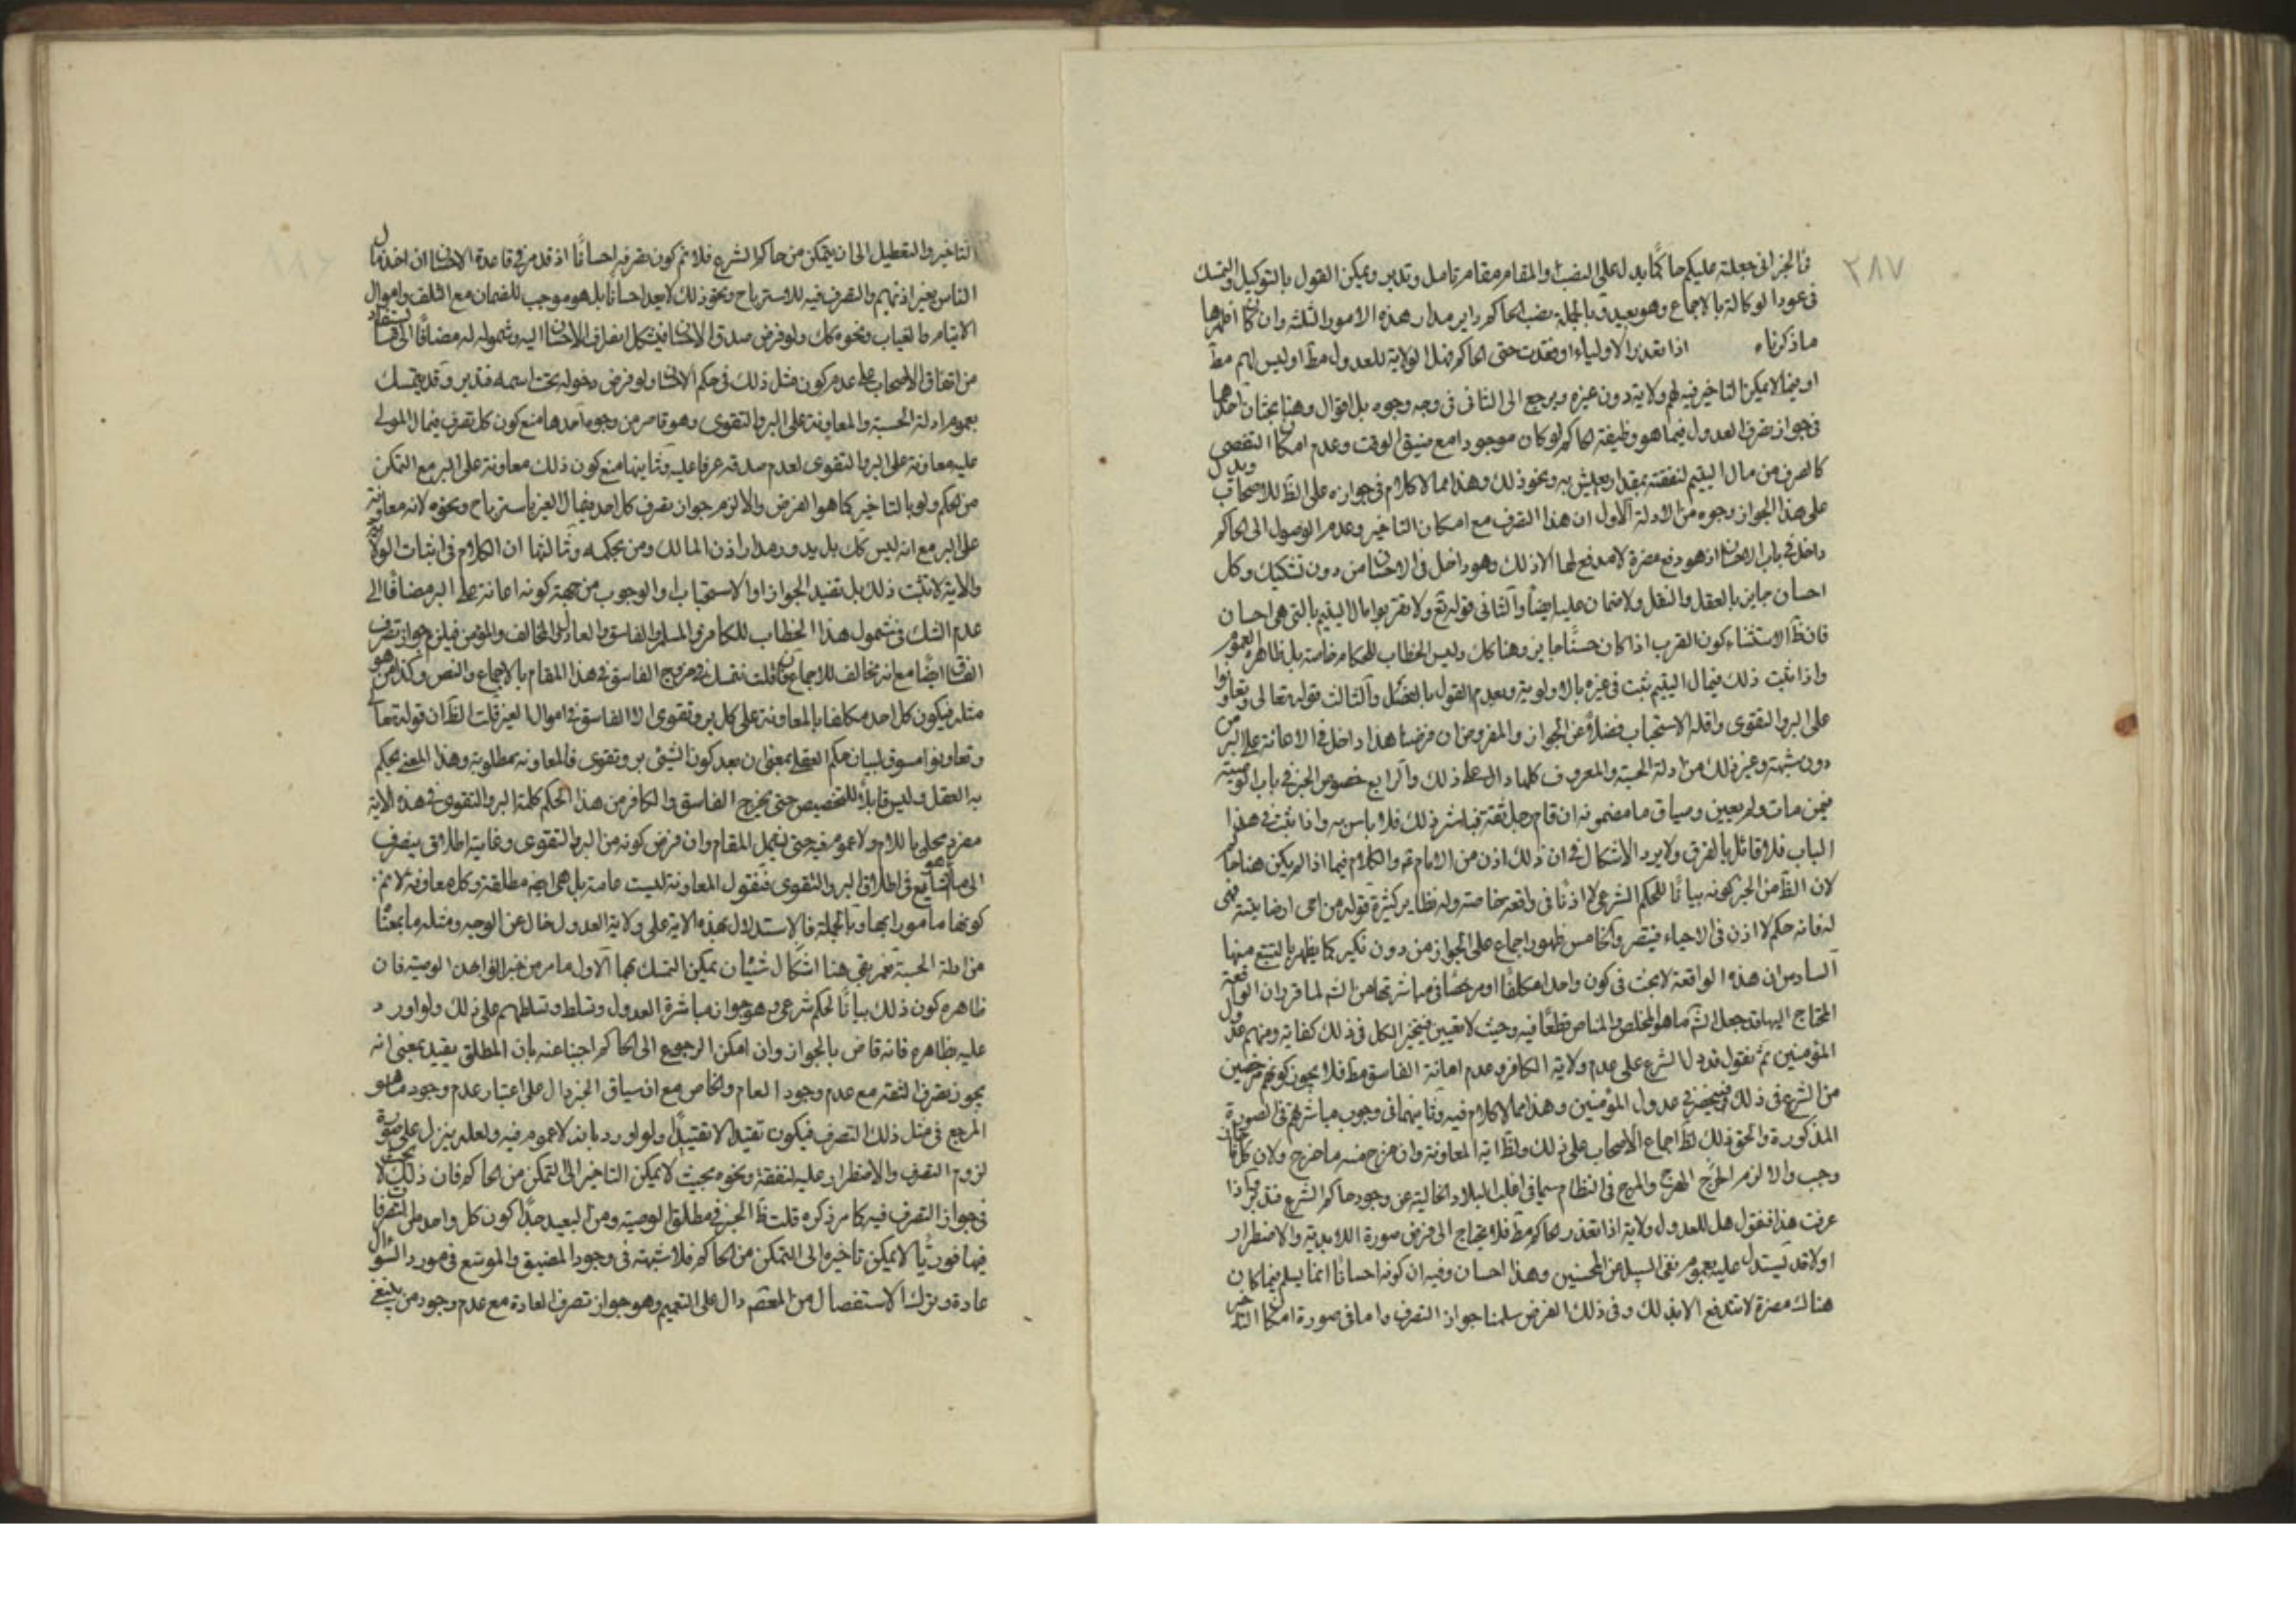 ٢٨٧
في الخبر اني جعلته عليكم حاكما يدل على النصب والمقام مقام تامل وتدبر ويمكن القول بالتوكيل والتمسك
في عود الوكالة بالاجماع وهو بعيد وبالجملة نصب الحاكم داير مدار هذه الامور الثلثة وان كان اظهرها
ما ذكرناه اذا تعذر الاولياء او فقدت حتى الحاكم فهل الولاية للعدول مط او ليس لهم مط
او فيما لا يمكن التاخير فيه لهم ولاية دون غيره ويرجع الى الثاني في وجه وجوه بل اقوال وهنا بحثان احدهما
في جواز تصرف العدول فيما هو وظيفة الحاكم لو كان موجودا مع ضيق الوقت وعدم امكان التفصي
كالصرف من مال اليتيم لنفقته بمقدار يعيش به ونحو ذلك وهذا مما لا كلام في جوازه على الظ للاصحاب ويدل
على هذا الجواز وجوه من الادلة الاول ان هذا التصرف مع امكان التاخير وعدم الوصول الى الحاكم
داخل في باب الاحسان اذ هو دفع مضرة لا مدفع لها الا ذلك وهو داخل في الاحسان من دون تشكيك وكل
احسان جايز بالعقل والنقل ولا ضمان عليه ايضا والثاني قوله تع ولا تقربوا مال اليتيم بالتي هي احسان
فان ظ الاستثناء كون القرب اذا كان حسنا جايز وهنا كك وليس الخطاب للحكام خاصة بل ظاهره العموم
واذا ثبت ذلك في مال اليتيم ثبت في غيره بالاولوية وبعدم القول بالفصل والثالث قوله تعالى وتعاونوا
على البر والتقوى واقله الاستحباب فضلا عن الجواز والمفروض ان فرضنا هذا داخل في الاعانة على البر من
دون شبهة وغير ذلك من ادلة الحسبة والمعروف كلها دال على ذلك والرابع خصوص الخبر في باب الوصية
فيمن مات ولم يعين وسياق ما مضمونه ان قام رجل ثقة فباشر ذلك فلا باس به واذا ثبت في هذا
الباب فلا قائل بالفرق ولا يرد الاشكال في ان ذلك اذن من الامام ع والكلام فيما اذا لم يكن هنا حاكم
لان الظ من الخبر كونه بيانا للحكم الشرعي لا اذنا في واقعة خاصة وله نظاير كثيرة كقوله من احيى ارضا ميتة فهي
له فانه حكم لا اذن في الاحياء فيقصر والخامس ظهور اجماع على الجواز من دون نكير كما يظهر بالتتبع منها
السادس ان هذه الواقعة لا بحث في كون واحد مكلفا او مرخصا في مباشرتها من الش لما قرر ان الواقعة
المحتاج اليها قد جعل الش ما هو المخلص والمناص قطعا فيه وحيث لا تعيين فيتخير الكل في ذلك كفاية ومنهم عدول
المؤمنين ثم نقول قد دل الشرع على عدم ولاية الكافر وعدم امانة الفاسق مط فلا يجوز كونهم مرخصين
من الشرع في ذلك فينحصر في عدول المؤمنين وهذا مما لا كلام فيه وثانيهما في وجوب مباشرتهم في الصورة
المذكورة والحق ذلك لظ اجماع الاصحاب على ذلك ولظ اية المعاونة وان خرج منه ما خرج ولان كلما جاز
وجب والا لزم الحرج الهرج والمرج في النظام سيما في اغلب البلاد الخالية عن وجود حاكم الشرع فتدبر اذا
عرفت هذا فنقول هل للعدول ولاية اذا تعذر الحاكم مط فلا يحتاج الى فرض صورة اللابدية والاضطرار
او لا قد يستدل عليه بعموم نفي السبيل عن المحسنين وهذا احسان وفيه ان كونه احسانا انما يسلم فيما كان
هناك مضرة لا تندفع الا بذلك وفي ذلك الفرض سلمنا جواز التصرف واما في صورة امكان التاخير
التاخير والتعطيل الى ان يتمكن من حاكم الشرع فلا نم كون تصرفه احسانا اذ قد مر في قاعدة الاحسان ان اخذ مال
الناس بغير اذنهم والتصرف فيه للاسترباح ونحو ذلك لا يعد احسانا بل هو موجب للضمان مع التلف واموال
الايتام والغياب ونحوه كك ولو فرض صدق الاحسان فيشكل انصراف الاحسان اليه وشموله له مضافا الى ما يستفاد
من اتفاق الاصحاب على عدم كون مثل ذلك في حكم الاحسان ولو فرض دخوله تحت اسمه فتدبر وقد يتمسك
بعموم ادلة الحسبة والمعاونة على البر والتقوى وهو قاصر من وجوه احدها منع كون كل تصرف في مال المولى
عليه معاونة على البر والتقوى لعدم صدقه عرفا عليه وثانيها منع كون ذلك معاونة على البر مع التمكن
من الحكم ولو بالتاخير كما هو الفرض والا لزم جواز تصرف كل احد في مال الغير باسترباح ونحوه لانه معاونة
على البر مع انه ليس كك بل يدور مدار اذن المالك ومن بحكمه وثالثها ان الكلام في اثبات الولاية
والاية لا تثبت ذلك بل تفيد الجواز او الاستحباب او الوجوب من جهة كونه اعانة على البر مضافا الى
عدم الشك في شمول هذا الخطاب للكافر والمسلم والفاسق والعادل والمخالف والمؤمن فيلزم جواز تصرف
الفساق ايضا مع انه مخالف للاجماع فان قلت نقول في خروج الفاسق في هذا المقام بالاجماع والنص وكذا من هو
مثله فيكون كل احد مكلفا بالمعاونة على كل بر وتقوى الا الفاسق في اموال الغير قلت الظ ان قوله تعالى
وتعاونوا مسوق لبيان حكم العقلي بمعنى ان بعد كون الشئ بر وتقوى فالمعاونة مطلوبة وهذا المعنى يحكم
به العقل وليس قابلا للتخصيص حتى يخرج الفاسق والكافر من هذا الحكم كلمة البر والتقوى في هذه الاية
مفرد محلى باللام ولا عموم فيه حتى يشمل المقام وان فرض كونه من البر والتقوى وغايته اطلاق ينصرف
الى ما هو الشايع في اطلاق البر والتقوى فنقول المعاونة ليست عامة بل هي ايضا مطلقة وكل معاونة لا نم
كونها مامورا بها وبالجملة فالاستدلال بهذه الاية على ولاية العدول خال عن الوجه ومثله ما بحثنا
من ادلة الحسبة نعم بقي هنا اشكال شيئان يمكن التمسك بهما الاول ما مر من خبر الواحد الوصية فان
ظاهره كون ذلك بيانا لحكم شرعي وهو جواز مباشرة العدول وتسلط وتسلطهم على ذلك ولو اورد
عليه بظاهره فانه قاض بالجواز وان امكن الرجوع الى الحاكم اجبنا عنه بان المطلق يقيد بمعنى انه
يجوز تصرف الثقة مع عدم وجود العام والخاص مع ان سياق الخبر دال على اعتبار عدم وجود ما هو
المرجع في مثل ذلك التصرف فيكون تقييدا لا تقييدا ولو اورد بانه لا عموم فيه ولعله ينزل على صورة
لزوم التصرف والاضطرار عليه لنفقة ونحوه بحيث لا يمكن التاخير الى التمكن من الحاكم فان ذلك لا بحث
في جواز التصرف فيه كما مر ذكره قلت ظ الخبر في مطلق الوصية ومن البعيد جدا كون كل واحد من التصرفات
فيها فوريا لا يمكن تاخيره الى التمكن من الحاكم فلا شبهة في وجود المضيق والموسع في مورد السؤال
عادة وترك الاستفصال من المعصم دال على التعميم وهو جواز تصرف العادة مع عدم وجود من ينبغي